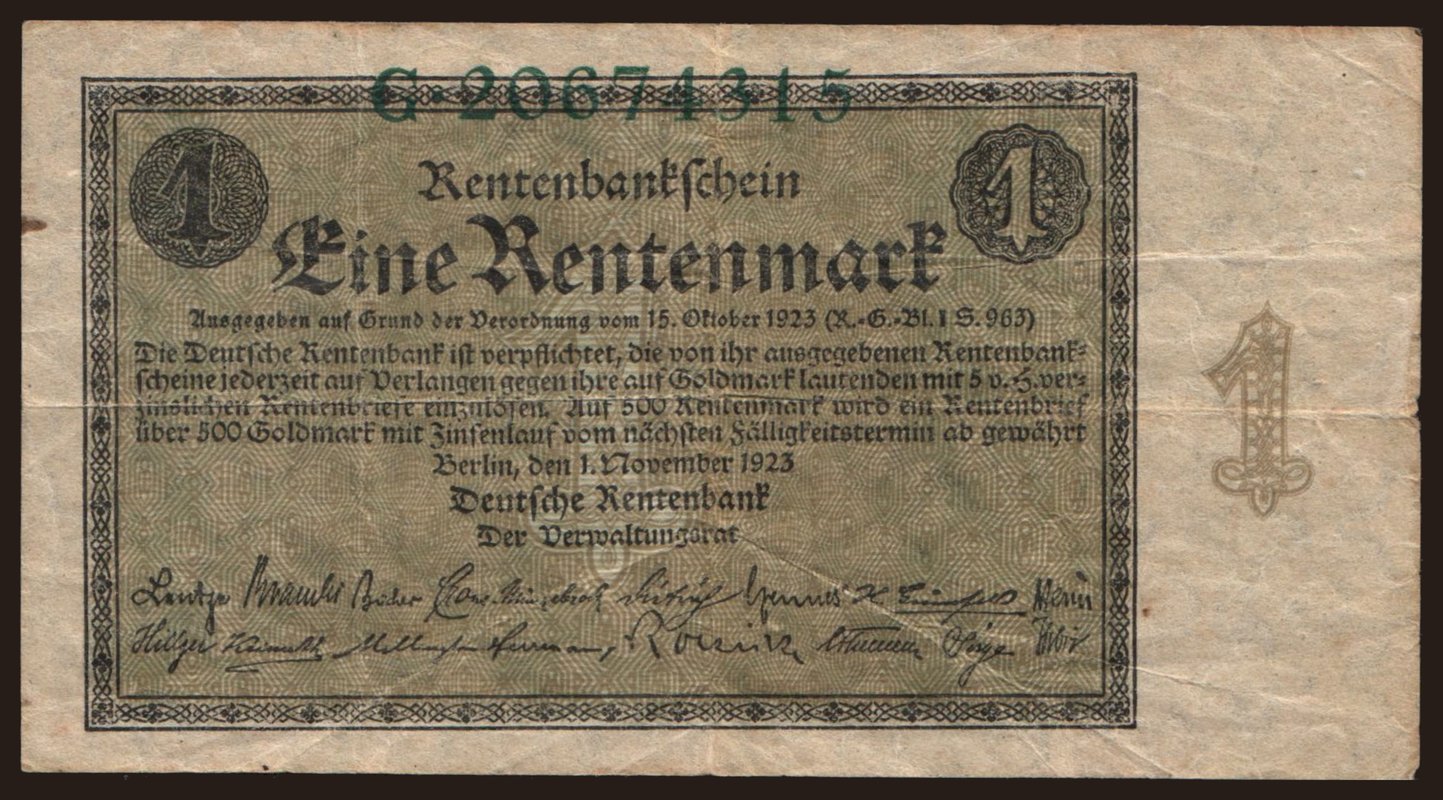 G·20674315
1 Rentenbankschein 1
Eine Rentenmark
Ausgegeben auf Grund der Verordnung vom 15. Oktober 1923 (R.-G.-Bl. I S. 963)
Die Deutsche Rentenbank ist verpflichtet, die von ihr ausgegebenen Rentenbank-
scheine jederzeit auf Verlangen gegen ihre auf Goldmark lautenden mit 5 v. H. ver-
zinslichen Rentenbriefe einzulösen. Auf 500 Rentenmark wird ein Rentenbrief
über 500 Goldmark mit Zinsenlauf vom nächsten Fälligkeitstermin ab gewährt
1
Berlin, den 1. November 1923
Deutsche Rentenbank
Der Verwaltungsrat
Lentze Brandes Bader Dietrich
Hillger